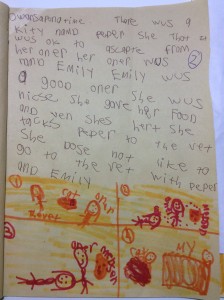 Owansaponutime There wus a
kity namd peper She thot at
wus ok to ascapte from
her oner her oner wus
namd EMILY EMILY wus
a good oner She wus
nicse She gave her food
and wen shes hert She
tacks peper to the vet
She peper
go Dose not like to
and to the vet with peper
EMILY
MY